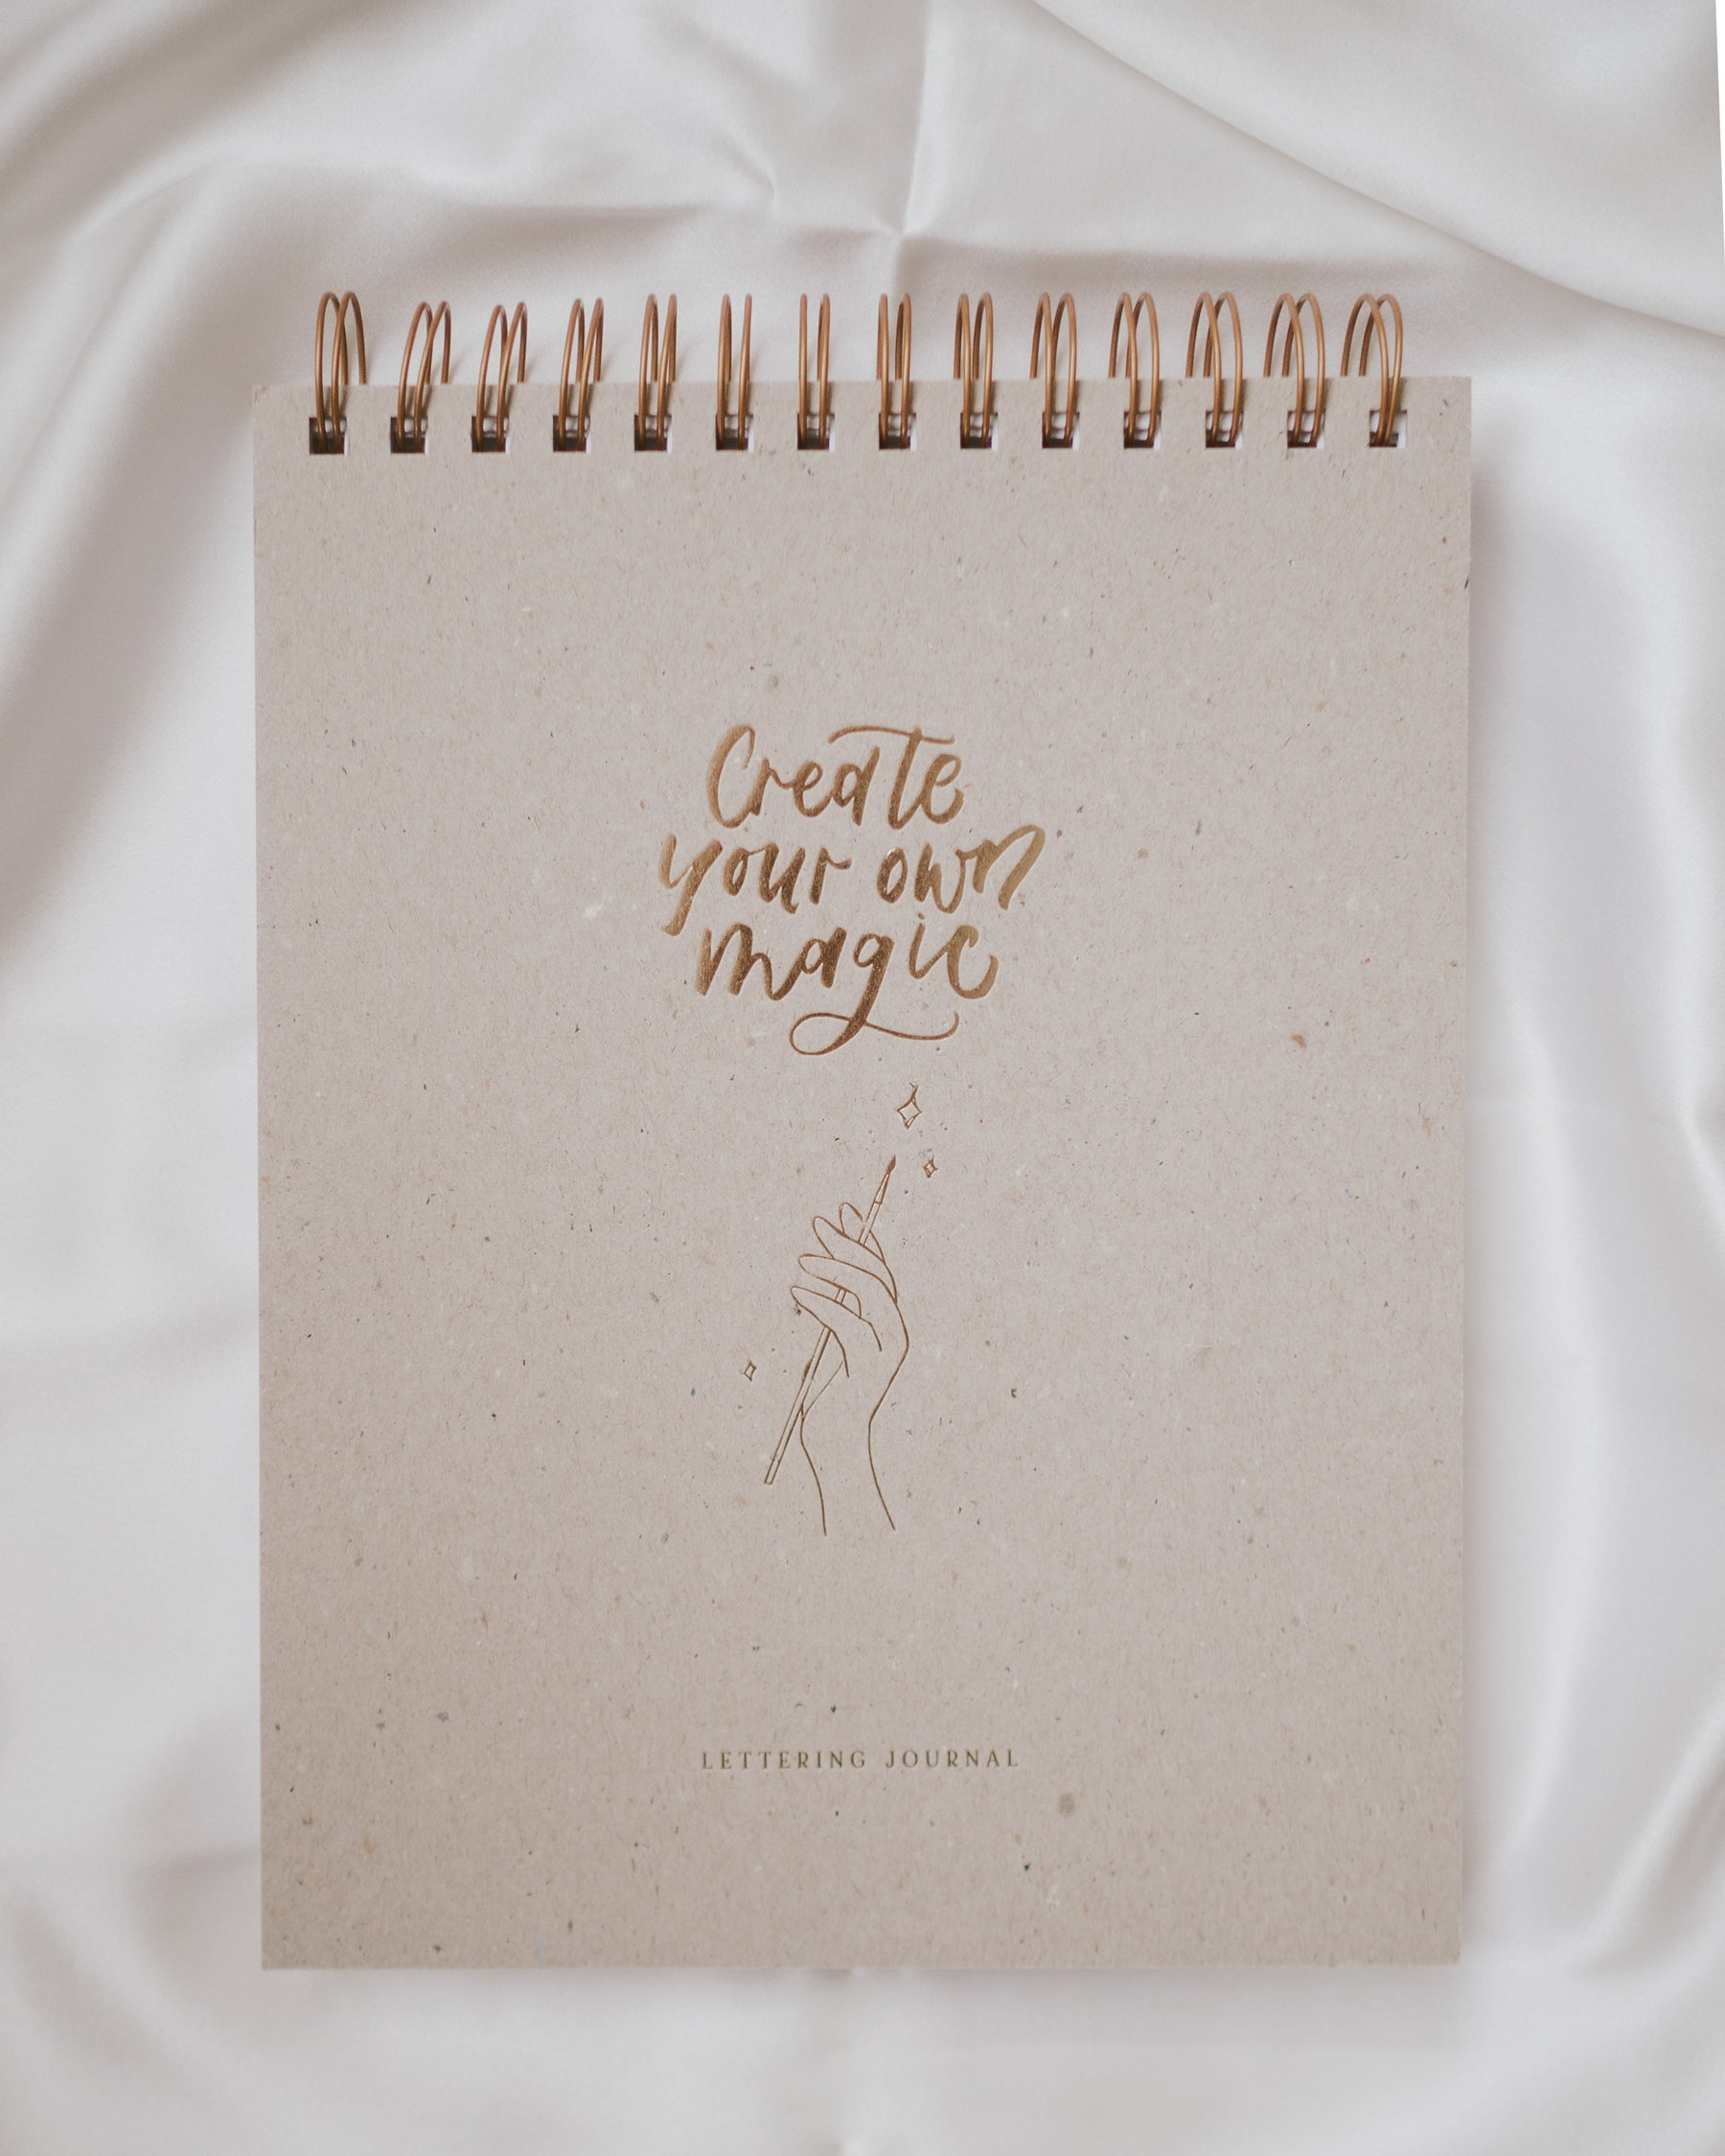 Create
your own
magic
LETTERING JOURNAL